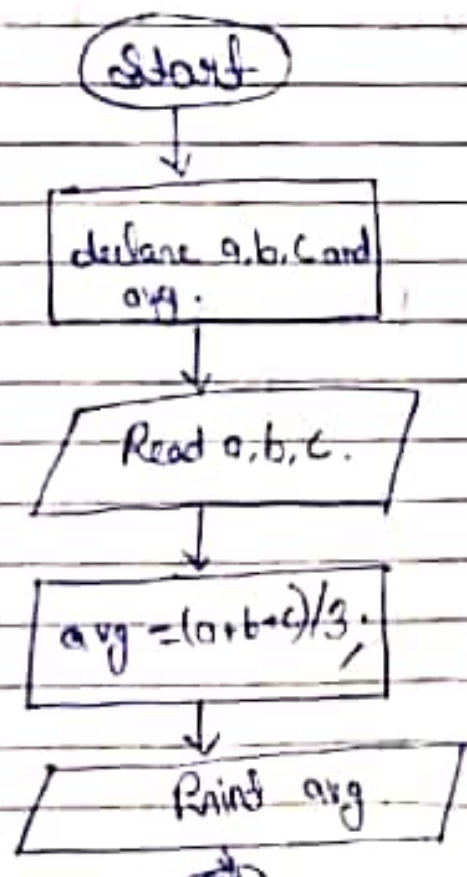 Start
declare a,b,c and
avg.
Read a,b,c.
avg=(a+b+c)/3;
Print avg